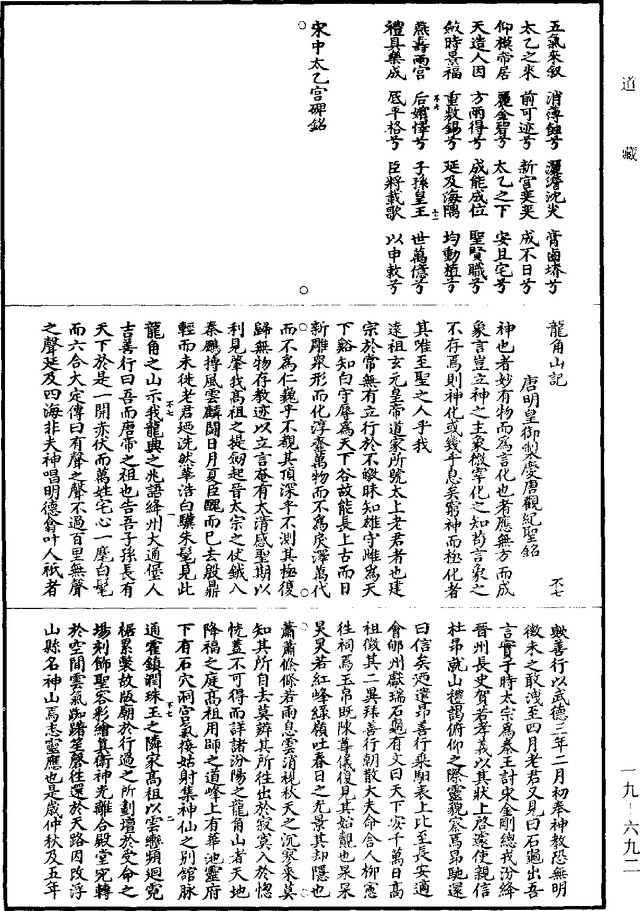 道藏
五氣來叙　消薄蝕兮　灑澹沈災　膏鹵塉兮
太乙之來　前可迹兮　新宮奕奕　成不日兮
仰模帝居　麗金碧兮　太乙之下　安且宅兮
天造人因　方兩得兮　成能成位　聖賢職兮
斂時景福　重敷錫兮　延及海隅　均動植兮
燕壽兩宮　后嬪懌兮　子孫皇王　世萬億兮
禮具樂成　厎平格兮　臣將載歌　以申敕兮
宋中太乙宮碑銘
龍角山記
唐明皇御製慶唐觀紀聖銘
神也者妙有物而為言化也者應無方而成
象言豈立神之主象微宰化之知苟言象之
不存焉則神化或幾乎息矣窮神而極化者
其唯至聖之人乎我
遠祖玄元皇帝道家所號太上老君者也建
宗於常無有立行於不皦昧知雄守雌為天
下谿知白守辱為天下谷故能長上古而日
新雕衆形而化淳虀萬物而不為戾澤萬代
而不為仁巍乎不觀其頂深乎不測其極復
歸無物存教迹以立言奄有太清感聖期以
利見肇我高祖之提劒起晉太宗之仗鉞入
秦鵬摶風雲麟鬭日月夏臣醜而已去殷鼎
輕而未徙老君廼洗然華浩白驥朱髦見此
龍角之山示我龍興之兆語絳州大通堡人
吉善行曰吾而唐帝之祖也告吾子孫長有
天下於是一開赤伏而萬姓宅心一麾白髦
而六合大定傳曰有聲之聲不過百里無聲
之聲延及四海非夫神唱明德翕叶人祇者
歟善行以武德三年二月初奉神教恐無明
徵未之敢洩至四月老君又見曰石龜出吾
言實于時太宗為秦王討宋金剛總戎汾絳
晉州長史賀若孝義以其狀上啓遽使親信
杜昂就山禮謁俯仰之際靈貌察焉昂馳還
曰信矣廼遣昂善行乘馹表上比至長安適
會郇州獻瑞石龜有文曰天下安千萬日高
祖徵其二異拜善行朝散大夫命舍人柳憲
徃祠焉玉帛既陳尊儀復見其始覿也杲杲
昊昊若紅峰綠嶺吐春日之光景其却隱也
蕭蕭條條若雨息雲消視秋天之沉寥來莫
知其所自去莫辨其所徃出於寂寞入於惚
恍蓋不可得而詳諸汾陽之龍角山者天地
降福之庭高祖用師之道峰上有華池靈府
下有石穴洞宮氣接姑射集神仙之別館脉
通霍鎮潤珠玉之隣家高祖以雲轡頻迴霓
裾累褻故版廟於行過之所劃壇於受命之
場刻飾聖容彩繪眞衛神光離合殿堂宛轉
於空間雲氣踟躇笙聲往還於天路因改浮
山縣名神山焉志靈應也是歲仲秋及五年
一九－六九二